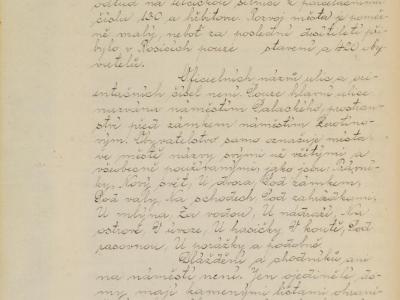 odtud na Tetčickou silnici k parcelnímu
číslu 130 a hřbitovu. Rozvoj města je poměr-
ně malý, neboť za poslední desítiletí při-
bylo v Rosicích pouze stavení a 400 oby-
vatelů.
Oficielních názvů ulic a ori-
entačních čísel není. Pouze hlavní ulice
nazvána náměstím Palackého, prostran-
ství před zámkem náměstím Žerotíno-
vým. Obyvatelstvo samo označuje místa
ve městě názvy svými už vžitými a
všeobecně používanými, jako jsou: Rybníč-
ky, Nový svět, U dvora, Pod zámkem,
Pod valy, Na schodech, Pod zahrádkami,
U mlýna, Za vodou, U nádraží, Na
ostrově, V íroze, U kasičky, V koutě, Pod
pazovnou, U porážky a podobně.
Dláždění a chodníků ani
na náměstí není. Jen ojedinělé do-
my mají kamennými lištami ohrani-